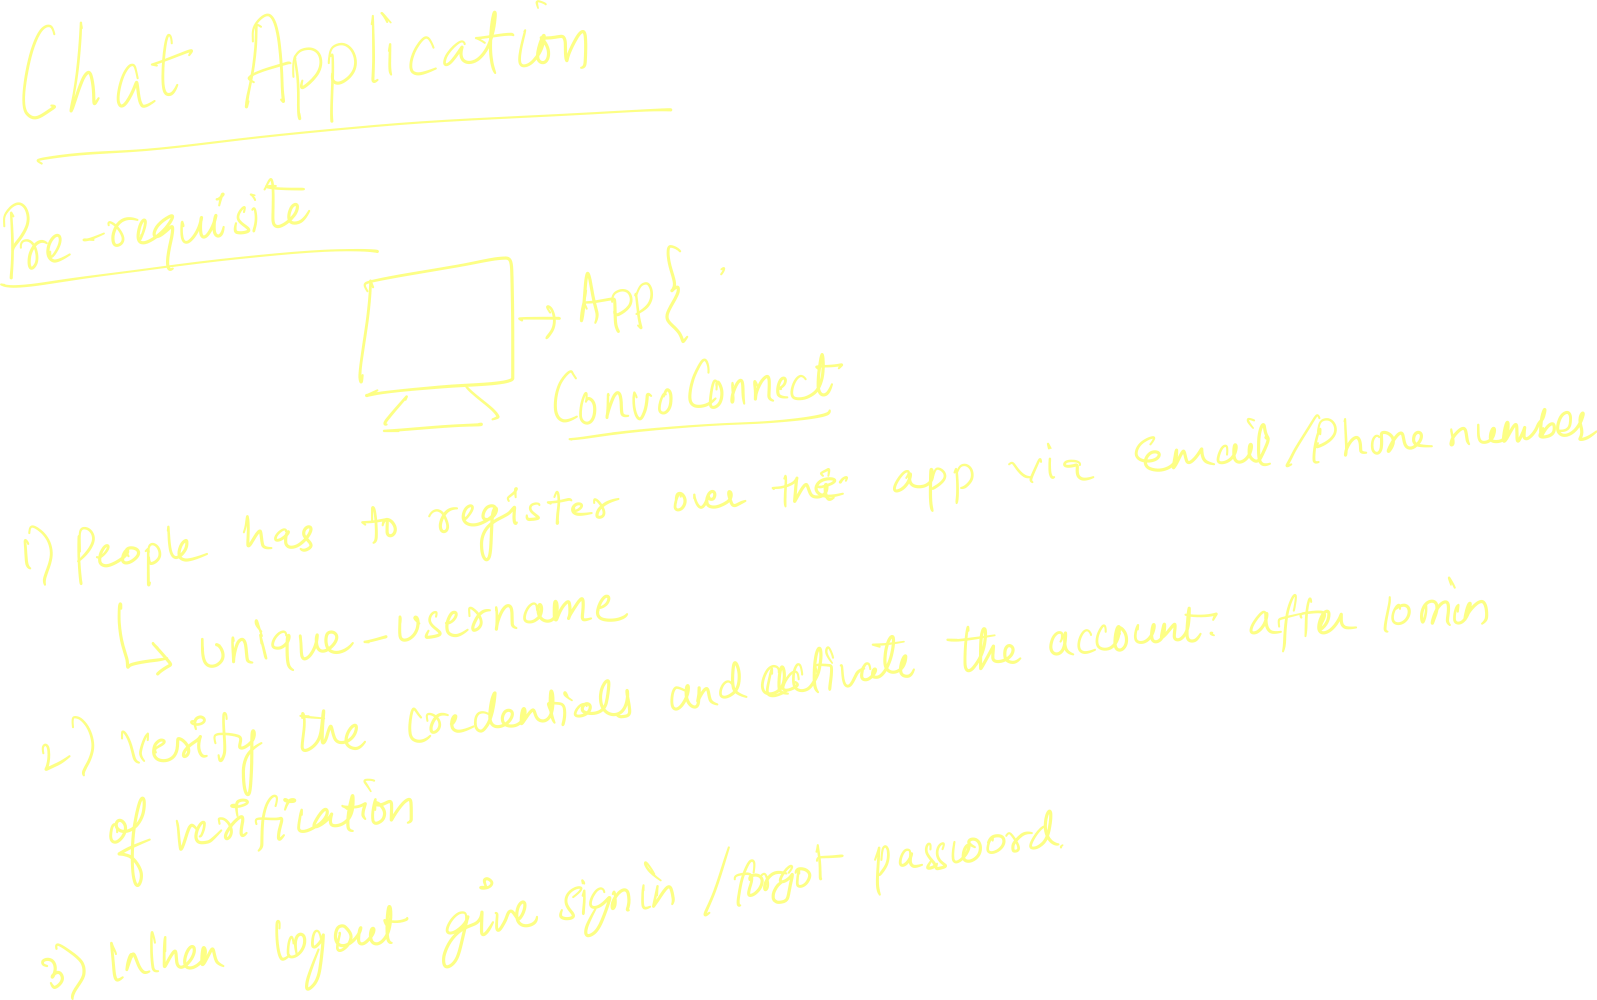 Chat Application
Pre-requisite
→ App {
ConvoConnect
1) People has to register over the app via Email/Phone number
↳ unique-username
2) Verify the credentials and activate the account. after 10 min
of verification
3) When logout give sign in / forgot password.